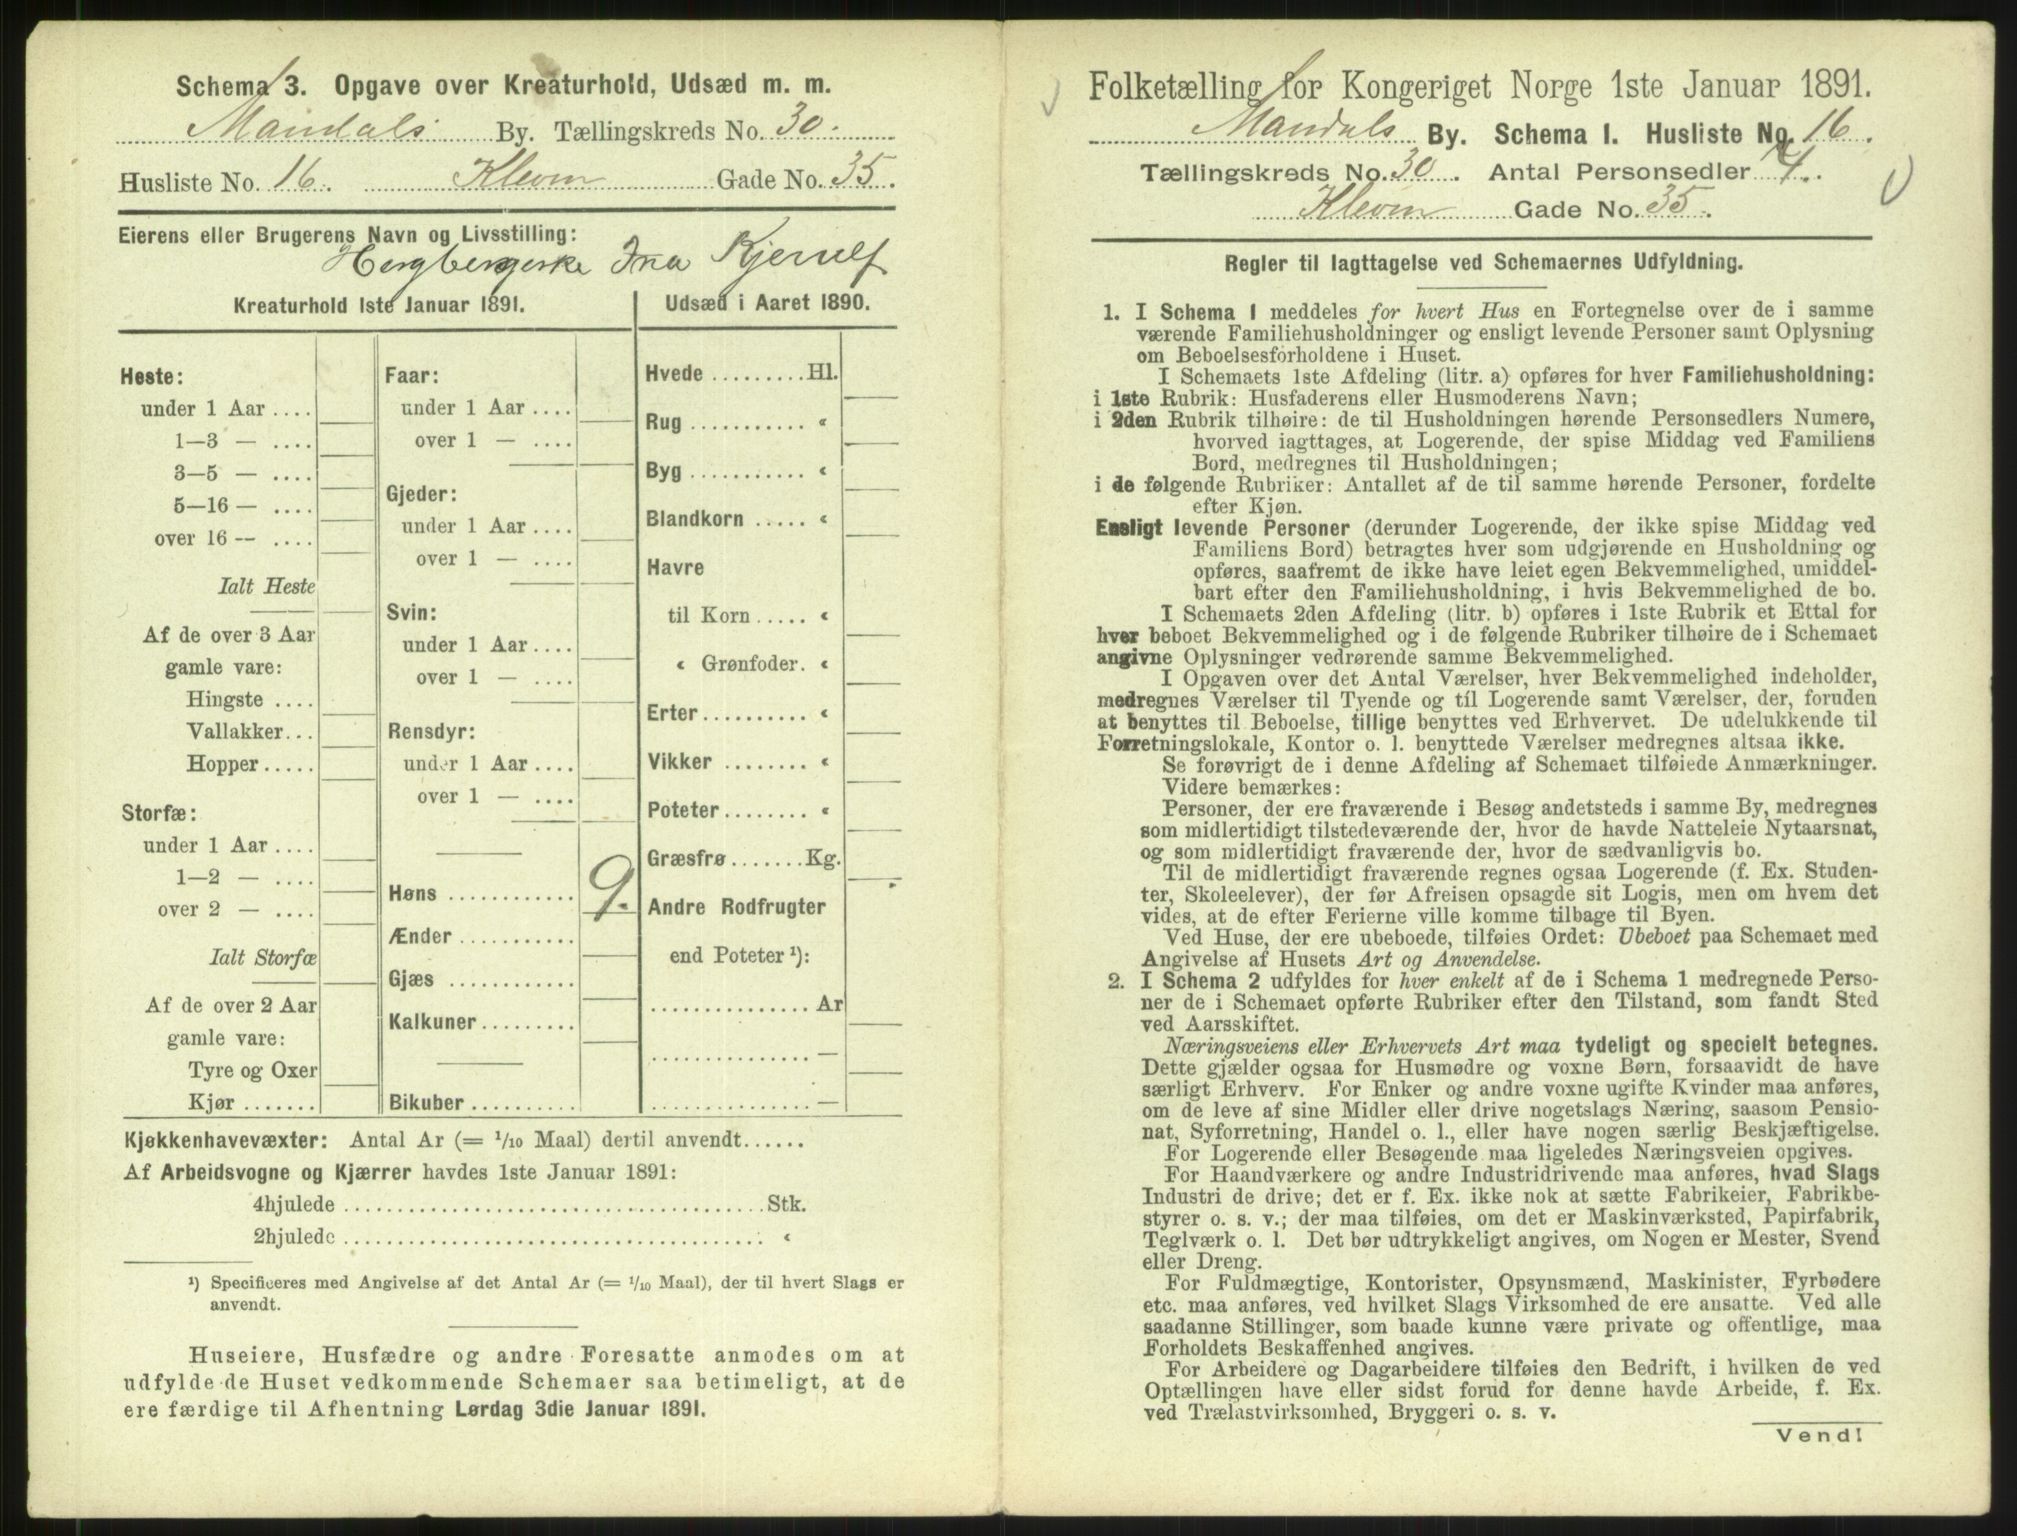 Schema 3. Opgave over Kreaturhold, Udsæd m. m.
Mandals By. Tællingskreds No. 30.
Husliste No. 16. Klevin Gade No. 35.
Eierens eller Brugerens Navn og Livsstilling:
Hergbergerske Fra Kjerulf
Kreaturhold 1ste Januar 1891.
Heste:
under 1 Aar ....
1—3 — ....
3—5 — ....
5—16 — ....
over 16 — ....
Ialt Heste
Af de over 3 Aar
gamle vare:
Hingste ....
Vallakker...
Hopper.....
Storfæ:
under 1 Aar ....
1—2 — ....
over 2 — ....
Ialt Storfæ
Af de over 2 Aar
gamle vare:
Tyre og Oxer
Kjør .......
Faar:
under 1 Aar ....
over 1 — ....
Gjeder:
under 1 Aar ....
over 1 — ....
Svin:
under 1 Aar ....
over 1 — ....
Rensdyr:
under 1 Aar ....
over 1 — ....
Høns ............ 9.
Ænder ...........
Gjæs ............
Kalkuner.........
Bikuber ..........
Udsæd i Aaret 1890.
Hvede .........Hl.
Rug ........... «
Byg ........... «
Blandkorn ..... «
Havre
til Korn ..... «
« Grønfoder. «
Erter.......... «
Vikker ........ «
Poteter ........ «
Græsfrø.......Kg.
Andre Rodfrugter
end Poteter ¹):
............... Ar
............... —
............... —
Kjøkkenhavevæxter: Antal Ar (= 1/10 Maal) dertil anvendt......
Af Arbeidsvogne og Kjærrer havdes 1ste Januar 1891:
4hjulede ........................................Stk.
2hjulede ........................................ «
¹) Specificeres med Angivelse af det Antal Ar (= 1/10 Maal), der til hvert Slags er
anvendt.
Huseiere, Husfædre og andre Foresatte anmodes om at
udfylde de Huset vedkommende Schemaer saa betimeligt, at de
ere færdige til Afhentning Lørdag 3die Januar 1891.
Folketælling for Kongeriget Norge 1ste Januar 1891.
Mandals By. Schema I. Husliste No. 16.
Tællingskreds No. 30. Antal Personsedler 4.
Klevin Gade No. 35.
Regler til Iagttagelse ved Schemaernes Udfyldning.
1. I Schema I meddeles for hvert Hus en Fortegnelse over de i samme
værende Familiehusholdninger og ensligt levende Personer samt Oplysning
om Beboelsesforholdene i Huset.
I Schemaets 1ste Afdeling (litr. a) opføres for hver Familiehusholdning:
i 1ste Rubrik: Husfaderens eller Husmoderens Navn;
i 2den Rubrik tilhøire: de til Husholdningen hørende Personsedlers Numere,
hvorved iagttages, at Logerende, der spise Middag ved Familiens
Bord, medregnes til Husholdningen;
i de følgende Rubriker: Antallet af de til samme hørende Personer, fordelte
efter Kjøn.
Ensligt levende Personer (derunder Logerende, der ikke spise Middag ved
Familiens Bord) betragtes hver som udgjørende en Husholdning og
opføres, saafremt de ikke have leiet egen Bekvemmelighed, umiddel-
bart efter den Familiehusholdning, i hvis Bekvemmelighed de bo.
I Schemaets 2den Afdeling (litr. b) opføres i 1ste Rubrik et Ettal for
hver beboet Bekvemmelighed og i de følgende Rubriker tilhøire de i Schemaet
angivne Oplysninger vedrørende samme Bekvemmelighed.
I Opgaven over det Antal Værelser, hver Bekvemmelighed indeholder,
medregnes Værelser til Tyende og til Logerende samt Værelser, der, foruden
at benyttes til Beboelse, tillige benyttes ved Erhvervet. De udelukkende til
Forretningslokale, Kontor o. l. benyttede Værelser medregnes altsaa ikke.
Se forøvrigt de i denne Afdeling af Schemaet tilføiede Anmærkninger.
Videre bemærkes:
Personer, der ere fraværende i Besøg andetsteds i samme By, medregnes
som midlertidigt tilstedeværende der, hvor de havde Natteleie Nytaarsnat,
og som midlertidigt fraværende der, hvor de sædvanligvis bo.
Til de midlertidigt fraværende regnes ogsaa Logerende (f. Ex. Studen-
ter, Skoleelever), der før Afreisen opsagde sit Logis, men om hvem det
vides, at de efter Ferierne ville komme tilbage til Byen.
Ved Huse, der ere ubeboede, tilføies Ordet: Ubeboet paa Schemaet med
Angivelse af Husets Art og Anvendelse.
2. I Schema 2 udfyldes for hver enkelt af de i Schema 1 medregnede Perso-
ner de i Schemaet opførte Rubriker efter den Tilstand, som fandt Sted
ved Aarsskiftet.
Næringsveiens eller Erhvervets Art maa tydeligt og specielt betegnes.
Dette gjælder ogsaa for Husmødre og voxne Børn, forsaavidt de have
særligt Erhverv. For Enker og andre voxne ugifte Kvinder maa anføres,
om de leve af sine Midler eller drive nogetslags Næring, saasom Pensio-
nat, Syforretning, Handel o. l., eller have nogen særlig Beskjæftigelse.
For Logerende eller Besøgende maa ligeledes Næringsveien opgives.
For Haandværkere og andre Industridrivende maa anføres, hvad Slags
Industri de drive; det er f. Ex. ikke nok at sætte Fabrikeier, Fabrikbe-
styrer o. s. v.; der maa tilføies, om det er Maskinværksted, Papirfabrik,
Teglværk o. l. Det bør udtrykkeligt angives, om Nogen er Mester, Svend
eller Dreng.
For Fuldmægtige, Kontorister, Opsynsmænd, Maskinister, Fyrbødere
etc. maa anføres, ved hvilket Slags Virksomhed de ere ansatte. Ved alle
saadanne Stillinger, som baade kunne være private og offentlige, maa
Forholdets Beskaffenhed angives.
For Arbeidere og Dagarbeidere tilføies den Bedrift, i hvilken de ved
Optællingen have eller sidst forud for denne havde Arbeide, f. Ex.
ved Trælastvirksomhed, Bryggeri o. s. v.
Vend!